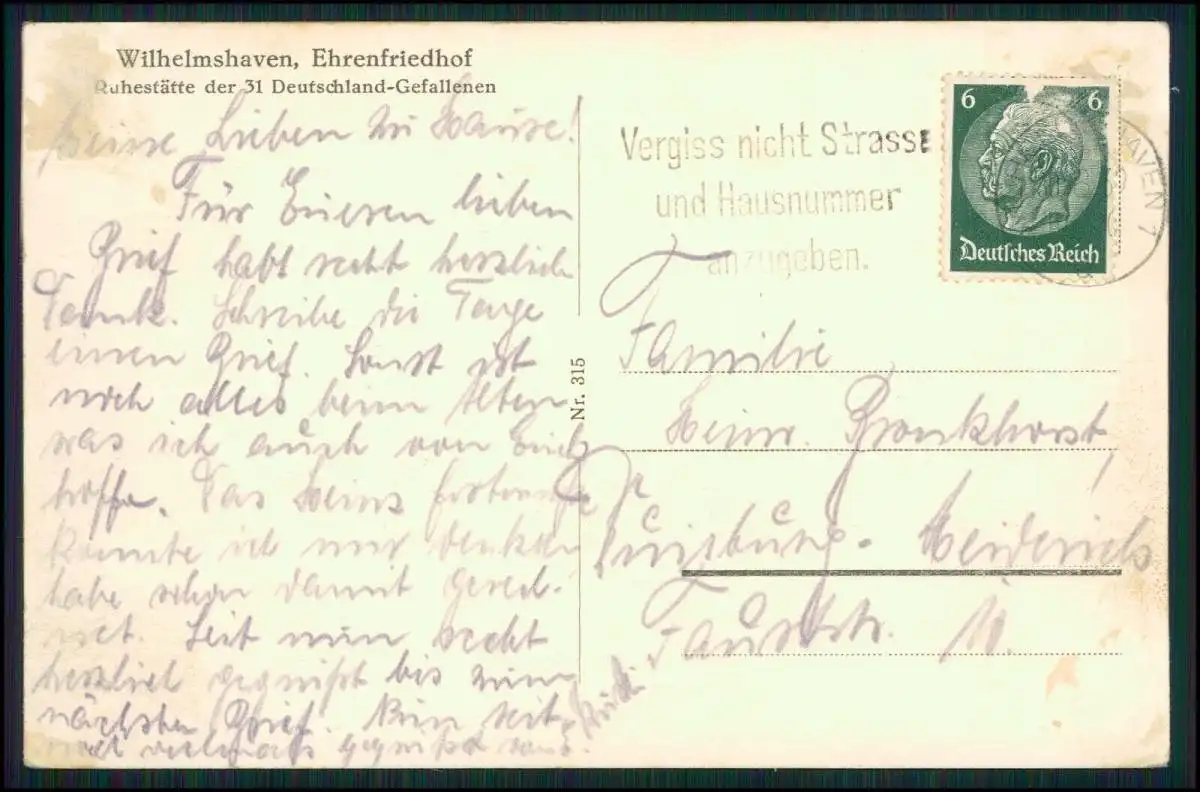 Wilhelmshaven, Ehrenfriedhof
Ruhestätte der 31 Deutschland-Gefallenen
Meine Lieben zu Hause!
Für Eueren lieben
Brief habt recht herzlich
Dank. Schreibe die Tage
einen Brief. Sonst ist
noch alles beim Alten
was ich auch von Euch
hoffe. Das Heinz
konnte ich mir denken
habe schon damit gerech-
net. Seit nun recht
herzlich gegrüßt bis zum
nächsten Brief. Nun seit
vielmals gegrüßt von
Vergiss nicht Strasse
und Hausnummer
anzugeben.
6 6
Deutsches Reich
HAVEN 1
Nr. 315
Familie
Heinr. Bronkhorst
Duisburg-Meiderich
Fauststr.